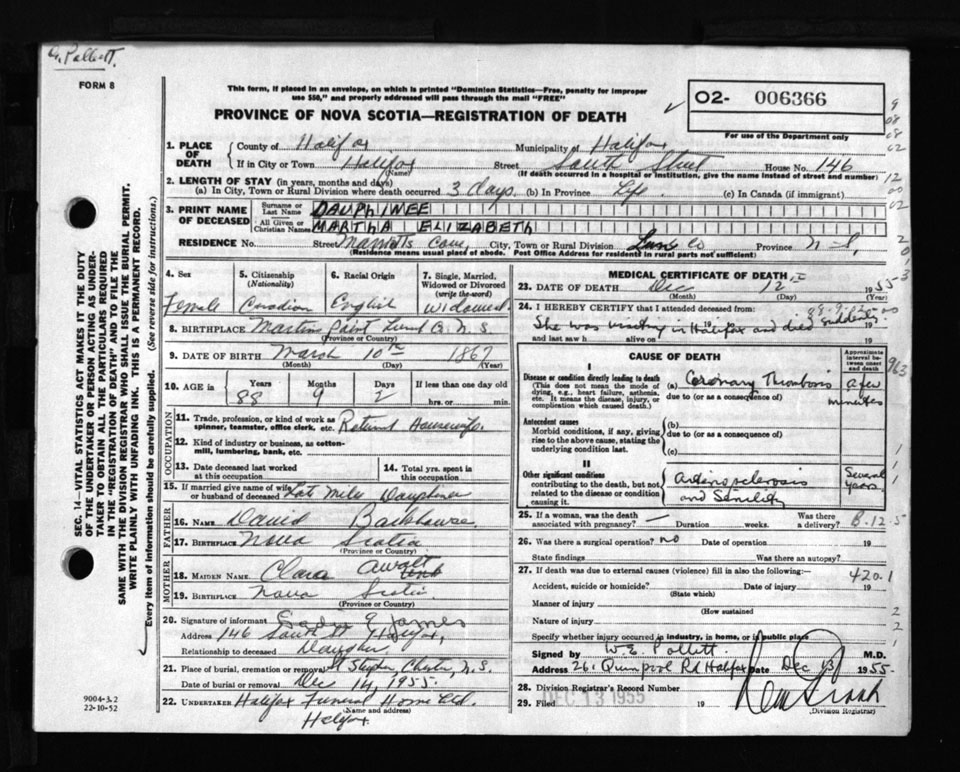 FORM 8
This form, if placed in an envelope, on which is printed "Dominion Statistics—Free, penalty for improper
use $50," and properly addressed will pass through the mail "FREE"
PROVINCE OF NOVA SCOTIA—REGISTRATION OF DEATH
O2- 006366
For use of the Department only
1. PLACE OF DEATH
County of Halifax Municipality of Halifax
If in City or Town Halifax (Name) Street South Street House No. 146
(If death occurred in a hospital or institution, give the name instead of street and number)
2. LENGTH OF STAY (in years, months and days)
(a) In City, Town or Rural Division where death occurred 3 days (b) In Province Life (c) In Canada (if immigrant)
3. PRINT NAME OF DECEASED
Surname or Last Name DAUPHINEE
All Given or Christian Names MARTHA ELIZABETH
RESIDENCE No. Street Marriotts Cove, City, Town or Rural Division Lun Co Province N.S.
(Residence means usual place of abode. Post Office Address for residents in rural parts not sufficient)
4. Sex Female
5. Citizenship (Nationality) Canadian
6. Racial Origin English
7. Single, Married, Widowed or Divorced (write the word) Widowed
8. BIRTHPLACE Martins Point Lund Co. N.S.
(Province or Country)
9. DATE OF BIRTH March 10th 1867
(Month) (Day) (Year)
10. AGE in Years 88 Months 9 Days 2 If less than one day old hrs. or min.
OCCUPATION
11. Trade, profession, or kind of work as spinner, teamster, office clerk, etc. Retired Housewife
12. Kind of industry or business, as cotton-mill, lumbering, bank, etc.
13. Date deceased last worked at this occupation
14. Total yrs. spent in this occupation
15. If married give name of wife or husband of deceased Late Miles Dauphinee
FATHER
16. NAME David Backhouse
17. BIRTHPLACE Nova Scotia
(Province or Country)
MOTHER
18. MAIDEN NAME Clara Awalt
19. BIRTHPLACE Nova Scotia
(Province or Country)
20. Signature of informant E James
Address 146 South St Halifax,
Relationship to deceased Daughter
21. Place of burial, cremation or removal St Stephen Chester, N.S.
Date of burial or removal Dec 14, 1955.
22. UNDERTAKER Halifax Funeral Home Ltd.
(Name and address)
Halifax
MEDICAL CERTIFICATE OF DEATH
23. DATE OF DEATH Dec 12th 1955
(Month) (Day) (Year)
24. I HEREBY CERTIFY that I attended deceased from
She was visiting in Halifax and died suddenly
19 to 19
and last saw h alive on 19
CAUSE OF DEATH
Approximate interval between onset and death
I
Disease or condition directly leading to death
(This does not mean the mode of dying, e.g., heart failure, asthenia, etc. It means the disease, injury, or complication which caused death.)
(a) Coronary Thrombosis a few minutes
due to (or as a consequence of)
Antecedent causes
Morbid conditions, if any, giving rise to the above cause, stating the underlying condition last.
(b)
due to (or as a consequence of)
(c)
II
Other significant conditions
contributing to the death, but not related to the disease or condition causing it.
Arteriosclerosis and Senility Several years
25. If a woman, was the death associated with pregnancy? — Duration weeks. Was there a delivery?
B-12-5
26. Was there a surgical operation? no Date of operation 19
State findings Was there an autopsy?
27. If death was due to external causes (violence) fill in also the following:—
420.1
Accident, suicide or homicide? Date of injury 19
(State which)
Manner of injury
(How sustained
Nature of injury
Specify whether injury occurred in industry, in home, or in public place
Signed by W.E. Pollett M.D.
Address 261 Quinpool Rd Halifax Date Dec 13 1955.
28. Division Registrar's Record Number
29. Filed DEC 13 1955 19
(Division Registrar)
SEC. 14—VITAL STATISTICS ACT MAKES IT THE DUTY
OF THE UNDERTAKER OR PERSON ACTING AS UNDERTAKER TO OBTAIN ALL THE PARTICULARS REQUIRED
IN THE "REGISTRATION OF DEATH" AND TO FILE THE
SAME WITH THE DIVISION REGISTRAR WHO SHALL ISSUE THE BURIAL PERMIT.
WRITE PLAINLY WITH UNFADING INK. THIS IS A PERMANENT RECORD.
Every item of information should be carefully supplied. (See reverse side for instructions.)
9004-3.2
22-10-52